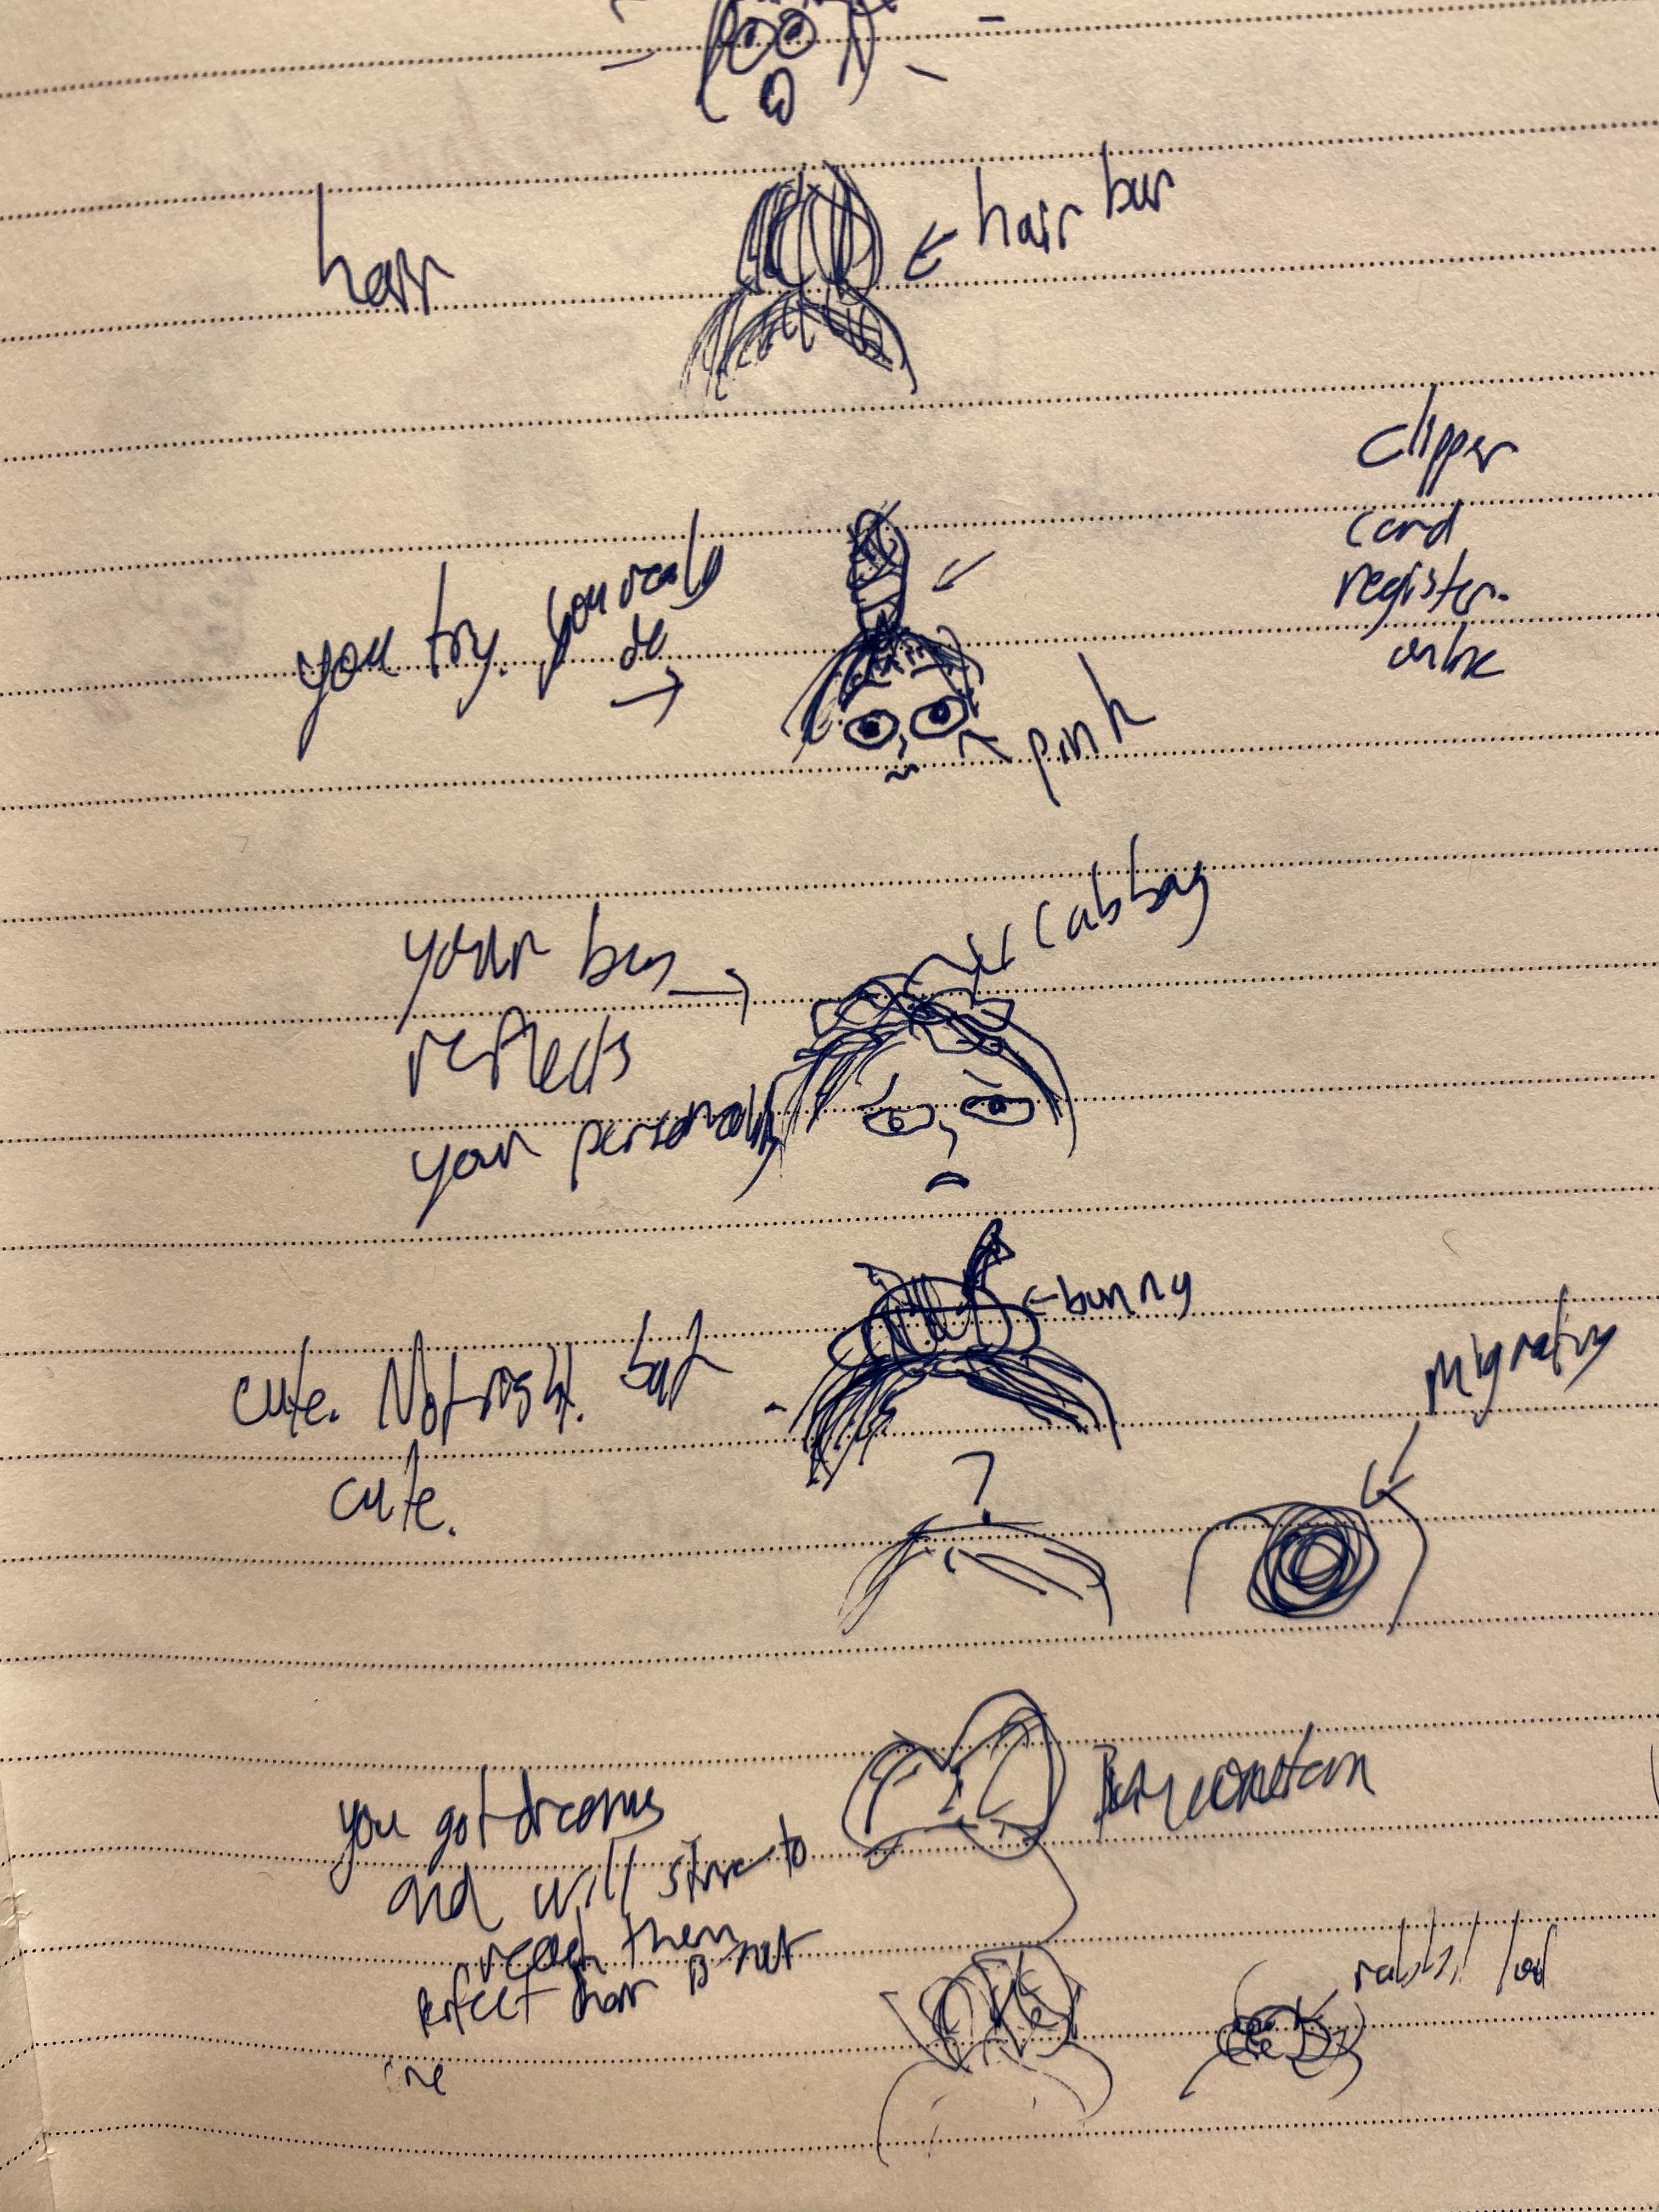 hair
hair bun
clipper
card
register
you try. you really
do
pink
cabbag
your bun
reflects
your personality
bunny
cute. Not right. but
cute.
migrating
?
you got dreams
and will strive to
reach them
perfect hair is not
one
rabbit